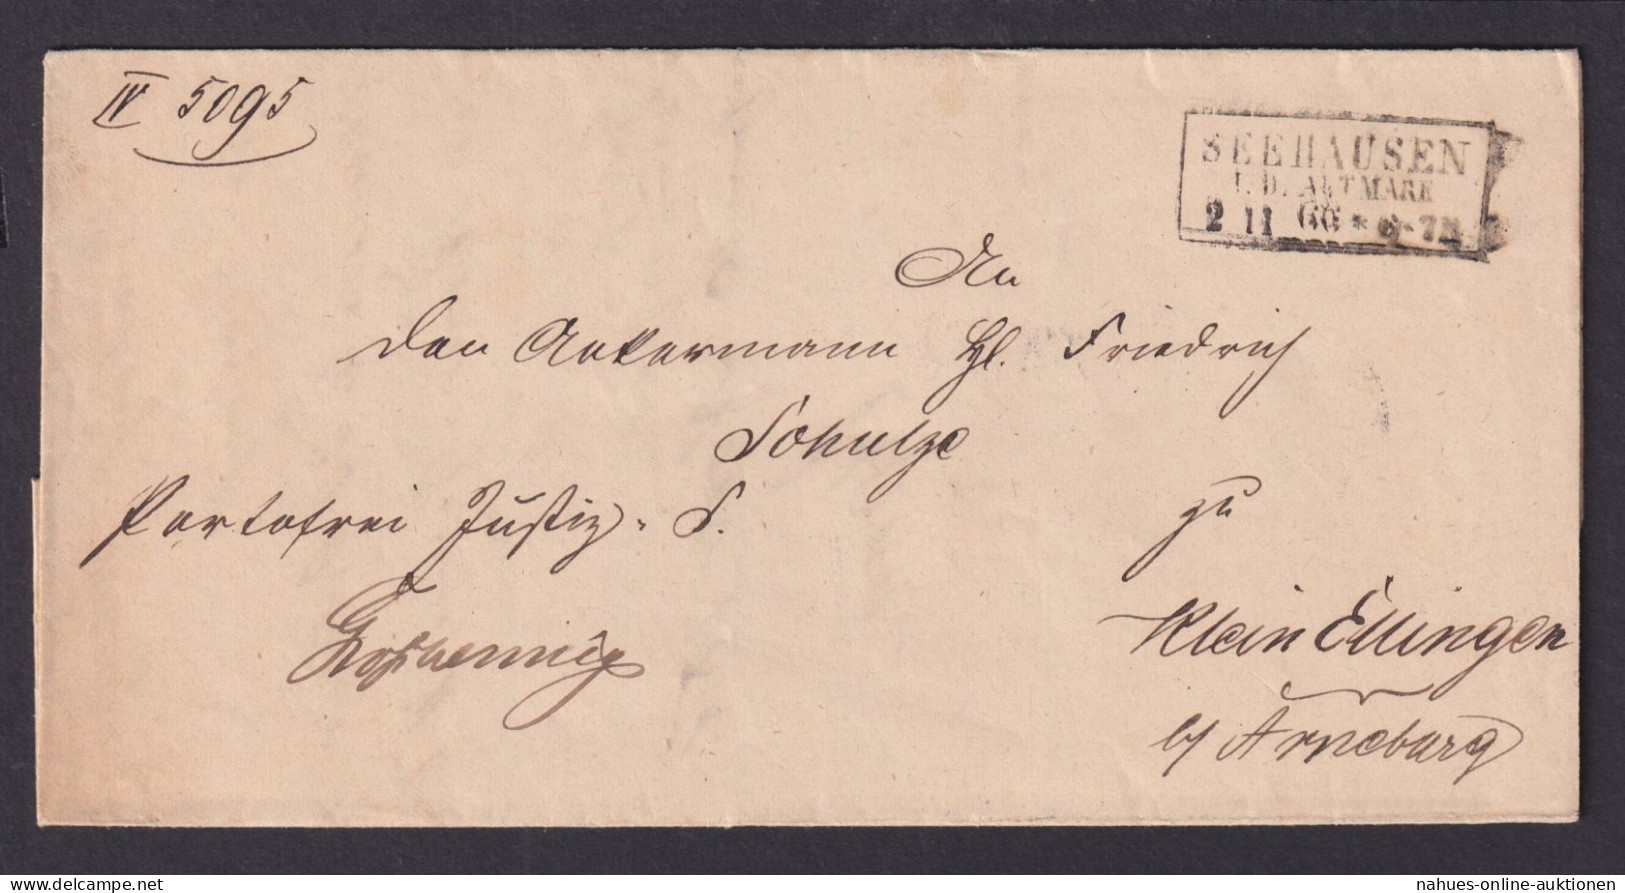 IV 5095
SEEHAUSEN
I. D. ALTMARK
2 11 66 * 6-7N
An
den Ackermann Hl. Friedrich
Schulze
Portofrei Justiz-S.
zu
Klein Ellingen
b/ Arneburg
nahues-online-auktionen